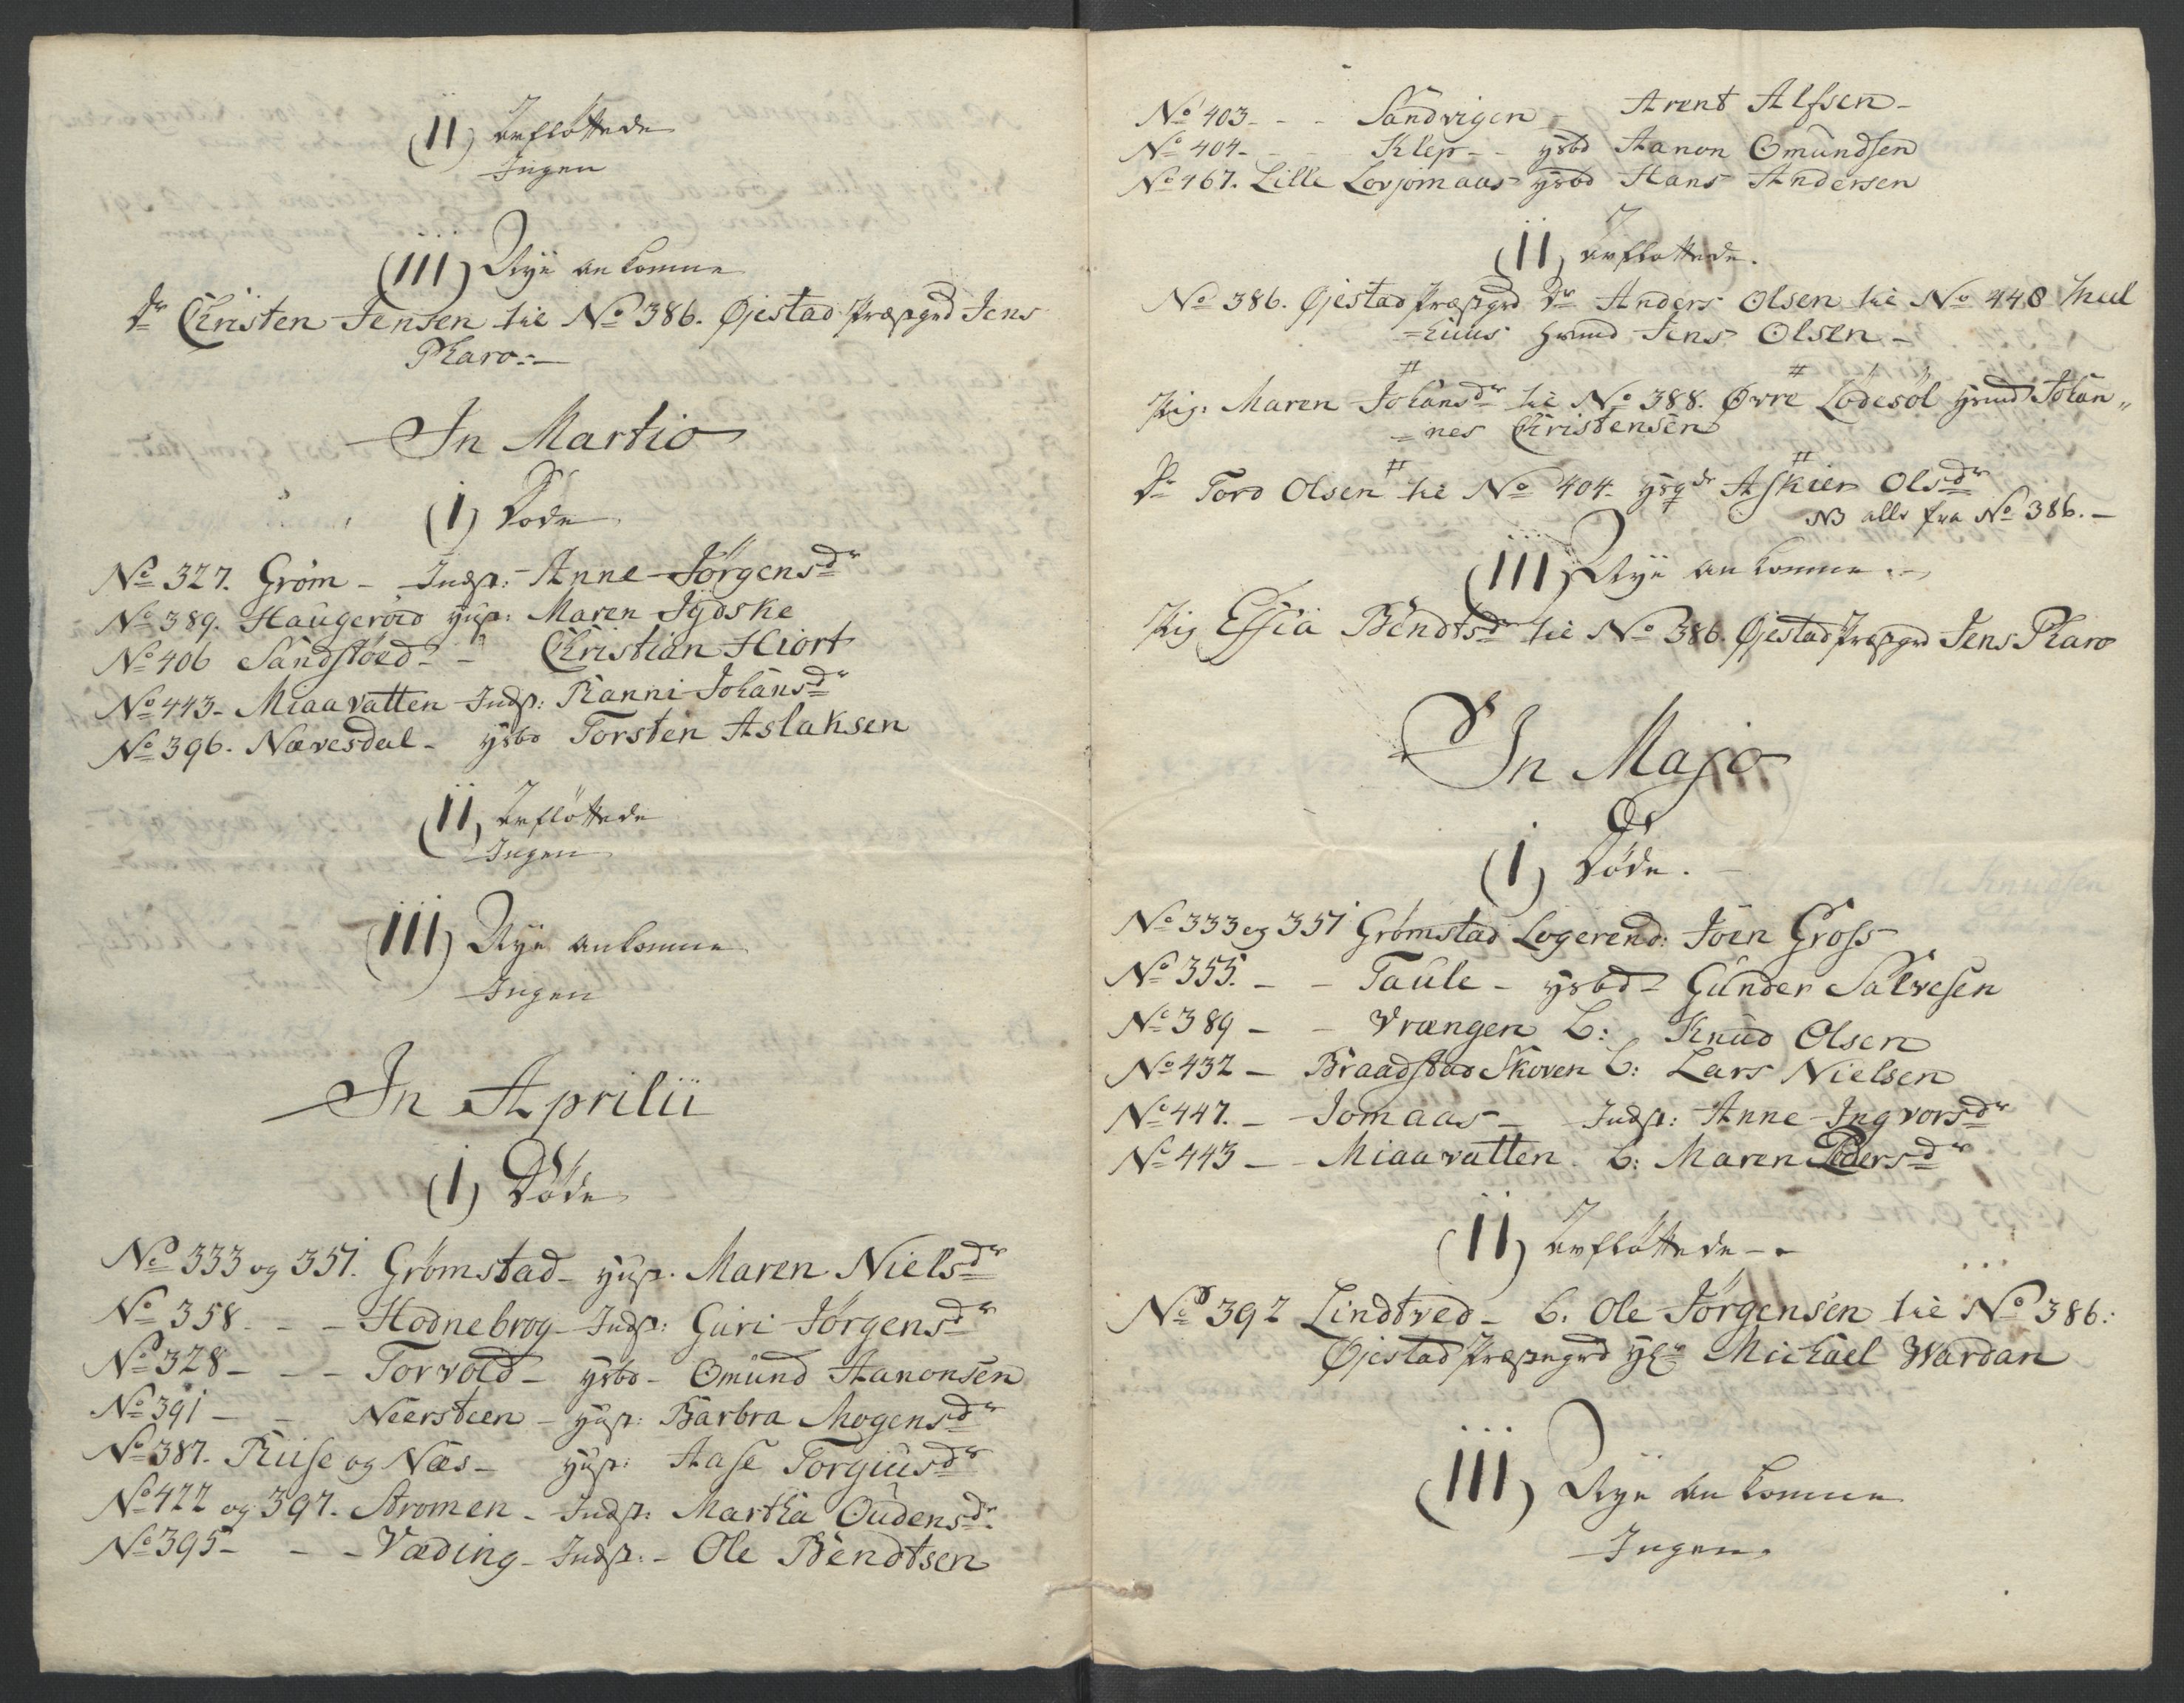 (II) Bortfløttede
Ingen
(III) Nye ankomne
Dr Christen Jensen til No 386. Øjestad Præstgrd Jens
Pharo.
In Martio
(I) Døde
No 327. Grøm - Indst: Anne Jørgensdr
No 389. Haugeröed Hust: Maren Jÿdske
No 406 Sandstöed - Christian Hiort
No 443. Miaavatten Indst: Ranni Johansdr
No 396. Nævesdal - Hsbd Torsten Aslaksen
(II)
Ingen
(III) Nye ankomne
Ingen
In Aprilii
(I) Døde
No 333 og 351. Grømstad - Hust. Maren Nielsdr
No 358. - - Hodnebrog - Indst: Guri Jørgensdr
No 328 - - Torvold - Hsbd - Omund Aanonsen
No 391 - - Neersteen - Hust: Barbra Mogensdr
No 387. Ruse og Næs - Hust: Aase Torgiusdr
No 422 og 397. Strømen - Indst: Martha Oudensdr
No 395 - - - Væding - Indst: - Ole Bendtsen
No 403 - - - Sandvigen - Arent Alfsen -
No 404 - - Klep - - Hsbd Aanon Omundsen
No 467. Lille Lovjomaas Hsbd Hans Andersen
(II)
No 386. Øjestad Præstgrd Dr Anders Olsen til No 448
Huusmand Jens Olsen -
Pig: Maren Johansdr til No 388. Øvre Lødesøl Hmnd Johan„
=nes Christensen
Dr Tord Olsen til No 404 Askier Olsdr
NB alle fra No 386. -
(III) Nye ankomne. -
Pig Effia Bendtsdr til No 386. Øjestad Præstgrd Jens Pharo
In Majo
(I) Døde. -
No 333 og 351 Grømstad Logerend: Joen Gross
No 355. - - Taule - Hsbd - Gunder Salvesen
No 389 - - Vrængen b: Knud Olsen
No 432 - Braadstad Skoven b: Lars Nielsen
No 447. - Jomaas - Indst: Anne Ingvorsdr
No 443 - - Miaavatten. b: Maren Pedersdr
(II)
No 392 Lindtved - b. Ole Jørgensen til No 386:
Øjestad Præstegrd Hr Michael Wardan
(III) Nye ankomne
Ingen.